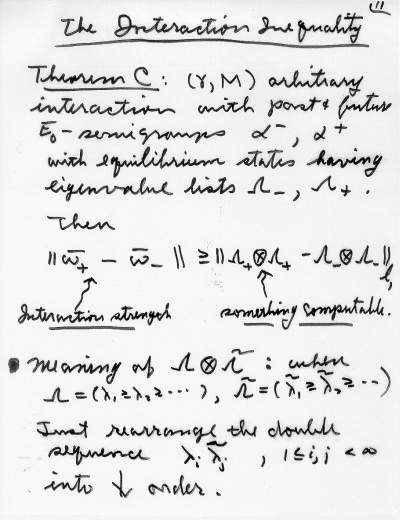 11
The Interaction Inequality
Theorem C: (γ, M) arbitrary
interaction with past & future
E₀-semigroups α⁻, α⁺
with equilibrium states having
eigenvalue lists Λ₋, Λ₊.
Then
‖ω̄₊ - ω̄₋‖ ≥ ‖Λ₊⊗Λ₊ - Λ₋⊗Λ₋‖ℓ₁
Interaction strength something computable.
• Meaning of Λ⊗Λ̃ : when
Λ = (λ₁≥λ₂≥···), Λ̃ = (λ̃₁≥λ̃₂≥··)
Just rearrange the double
sequence λᵢλ̃ⱼ , 1≤i,j<∞
into ↓ order.